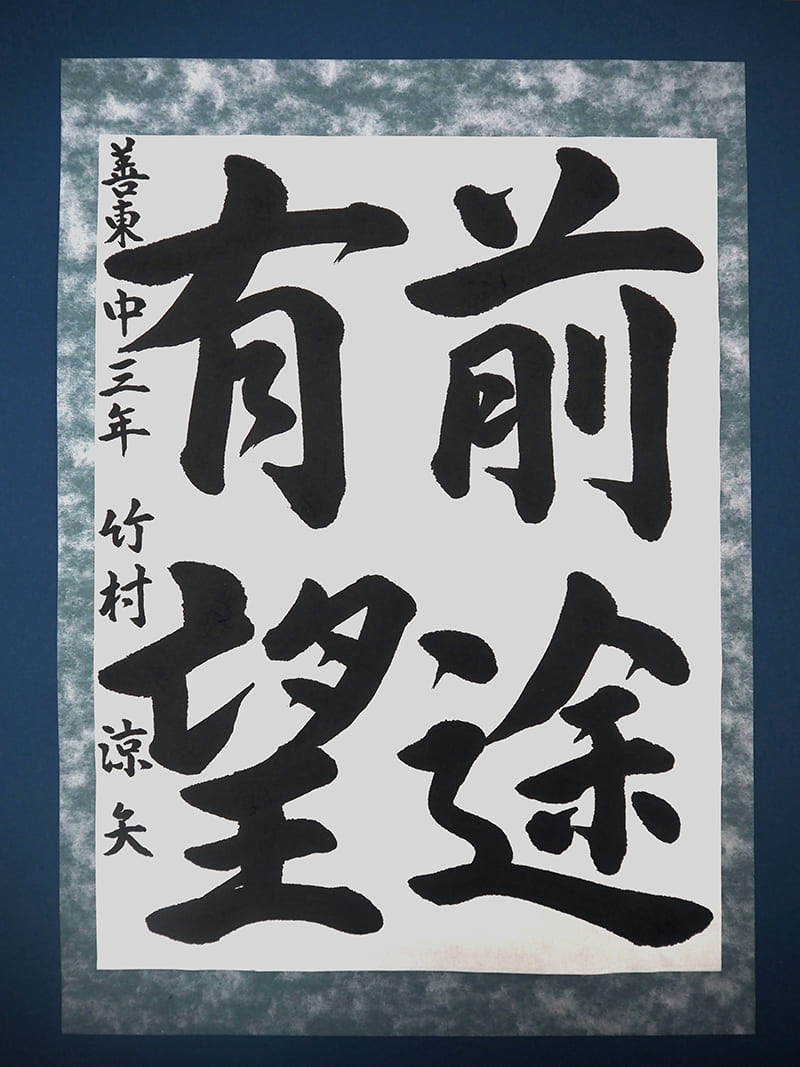 前途
有望
善東中三年 竹村 涼矢